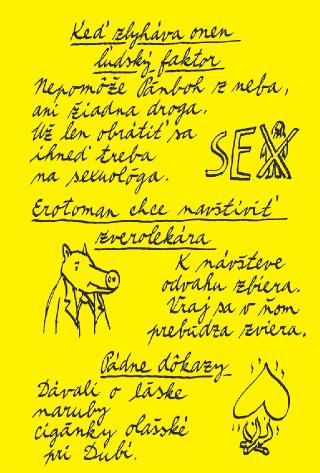 Keď zlyháva onen
ľudský faktor
Nepomôže Pánboh z neba,
ani žiadna droga.
Už len obrátiť sa
ihneď treba
na sexuológa.
SEX
Erotoman chce navštíviť
zverolekára
K návšteve
odvahu zbiera.
Vraj sa v ňom
prebúdza zviera.
Pádne dôkazy
Dávali o láske
naruby
cigánky olašské
pri Dubí.